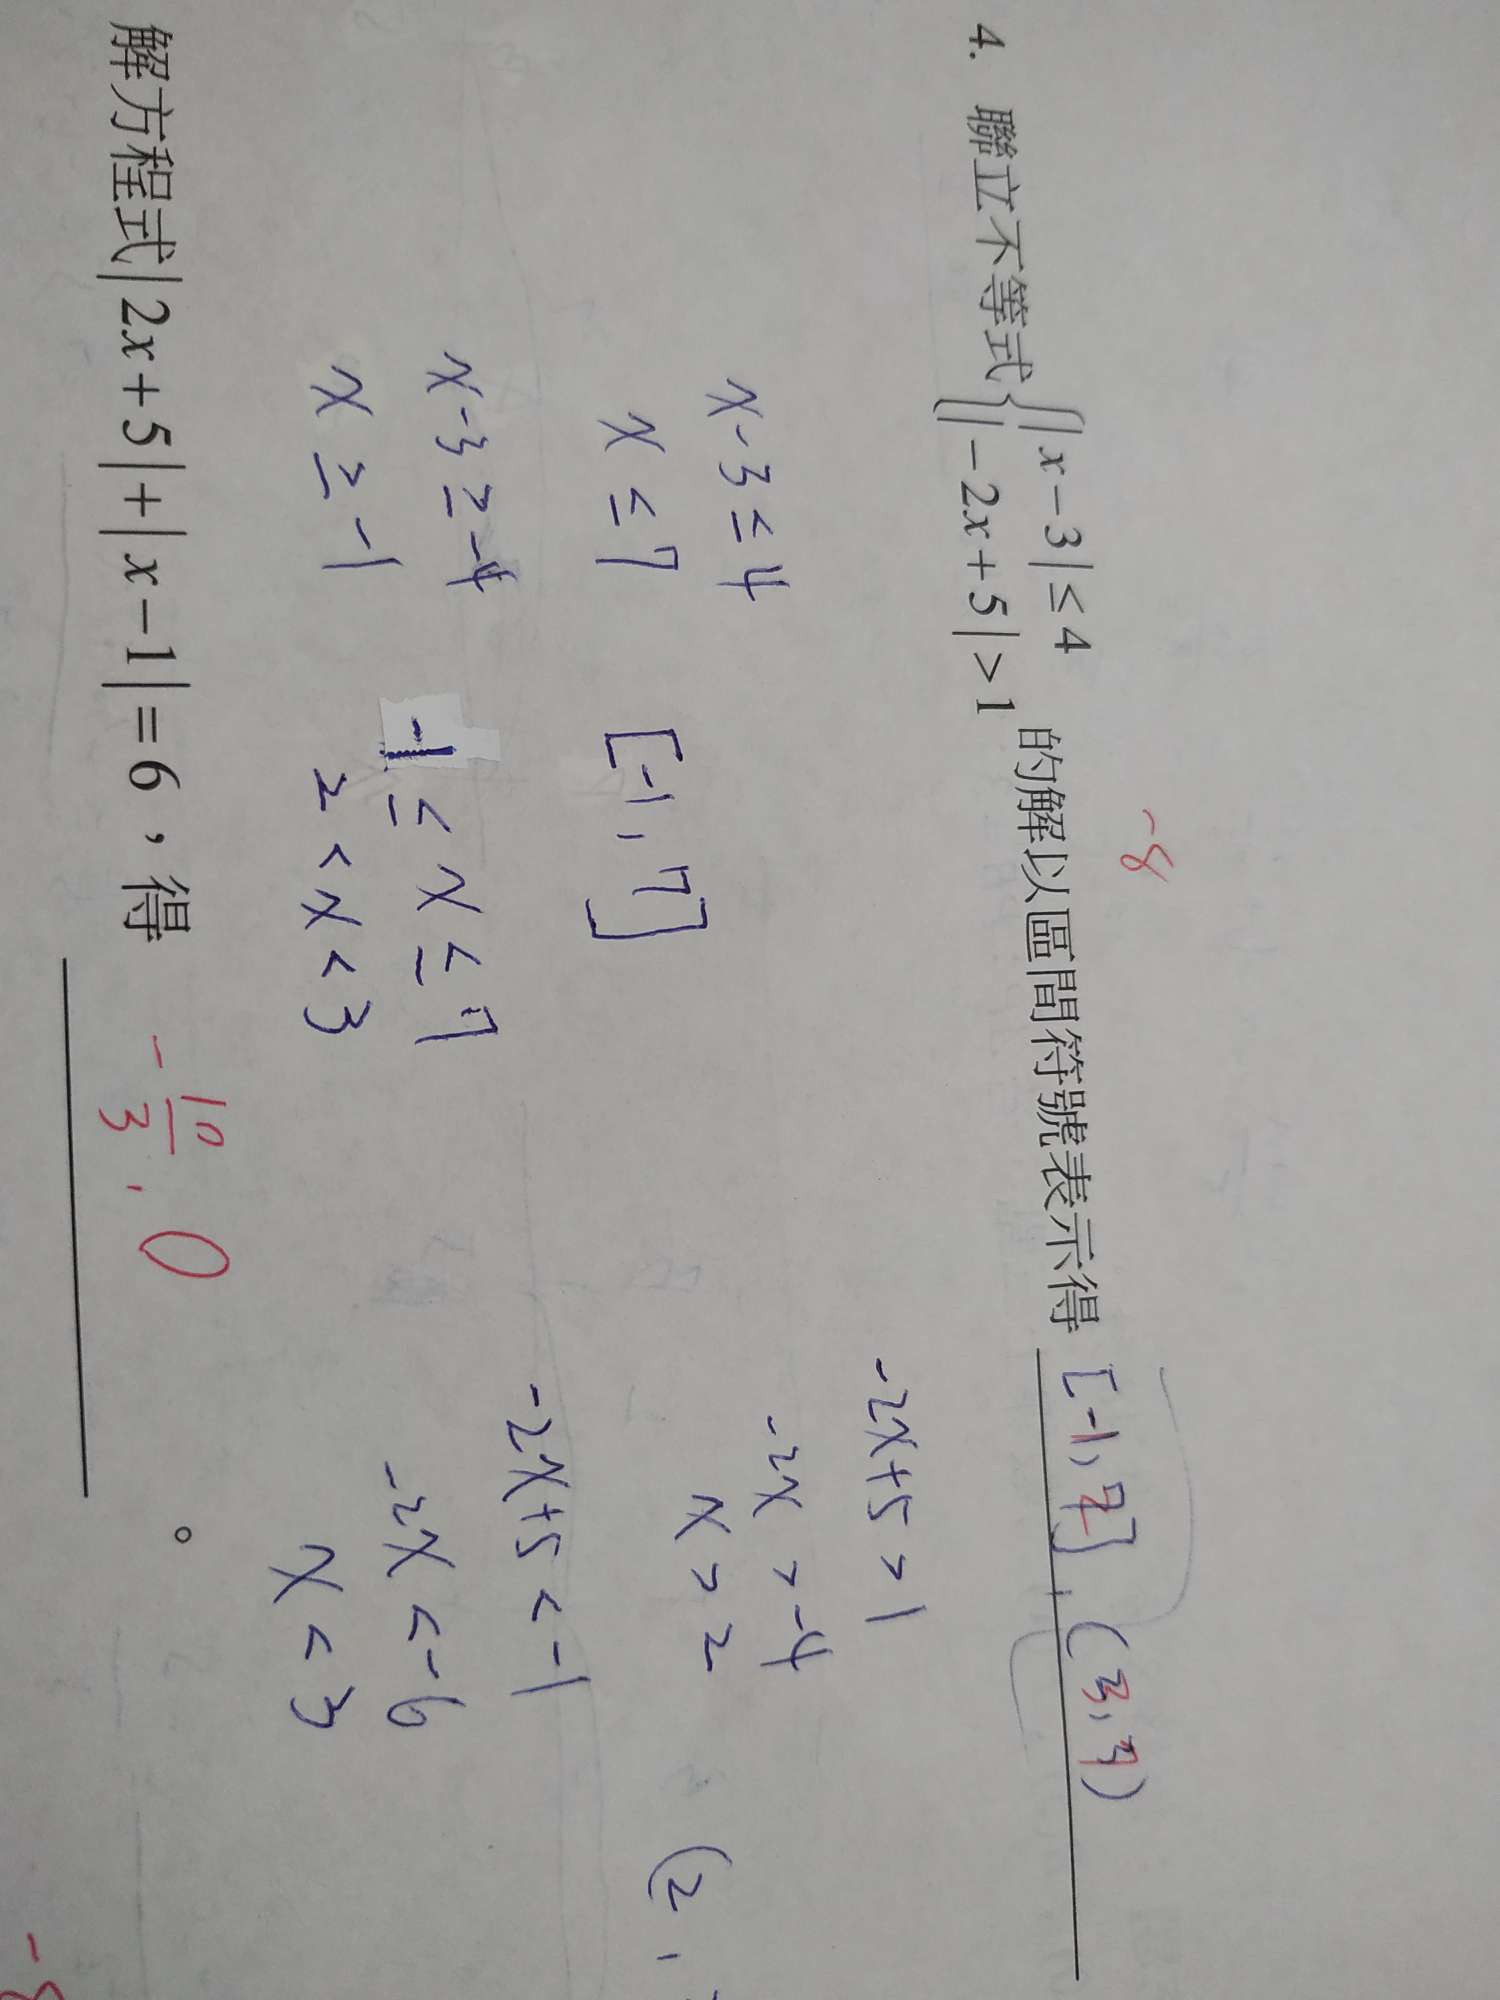 -8
4. 聯立不等式{|x-3|≤4 的解以區間符號表示得 [-1,7],(3,7)
|-2x+5|>1
x-3≤4
x≤7
x-3≥-4
x≥-1
[-1,7]
-1≤x≤7
2<x<3
-2x+5>1
-2x>-4
x>2
-2x+5<-1
-2x<-6
x<3
(2,
解方程式|2x+5|+|x-1|=6,得 -10/3,0 。
-8